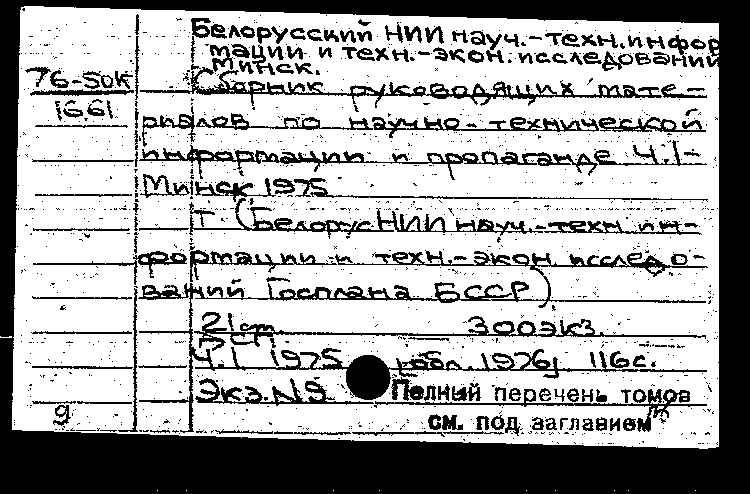 Белорусский НИИ науч.-техн.инфор
мации и техн.-экон.исследований
Минск.
76-50К
16.61
Сборник руководящих мате-
риалов по научно-технической
информации и пропаганде Ч.1-
Минск 1975
т. (БелорусНИИ науч.-техн. ин-
формации и техн.-экон. исследо-
ваний Госплана БССР)
21 cm. 300 экз.
Ч.1 1975 1976 116с.
Экз.N9 Полный перечень томов
9 см. под заглавием